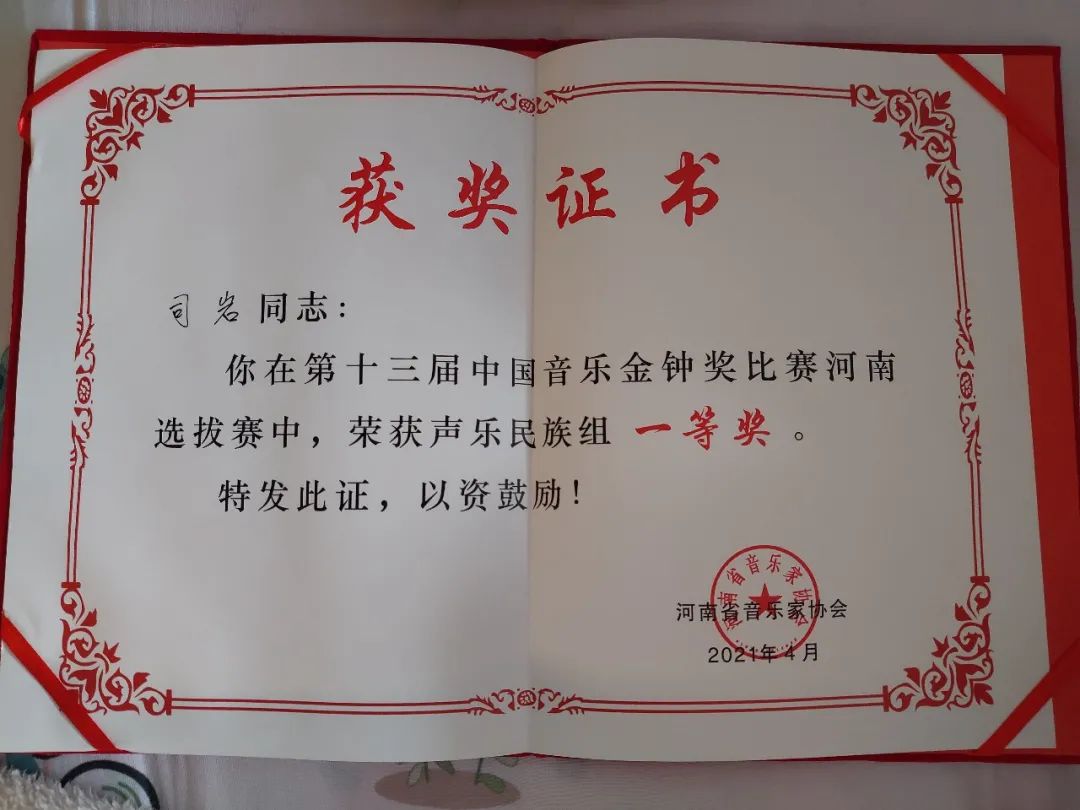 获奖证书
司岩 同志：
你在第十三届中国音乐金钟奖比赛河南
选拔赛中，荣获声乐民族组 一等奖 。
特发此证，以资鼓励！
河南省音乐家协会
河南省音乐家协会
2021年4月